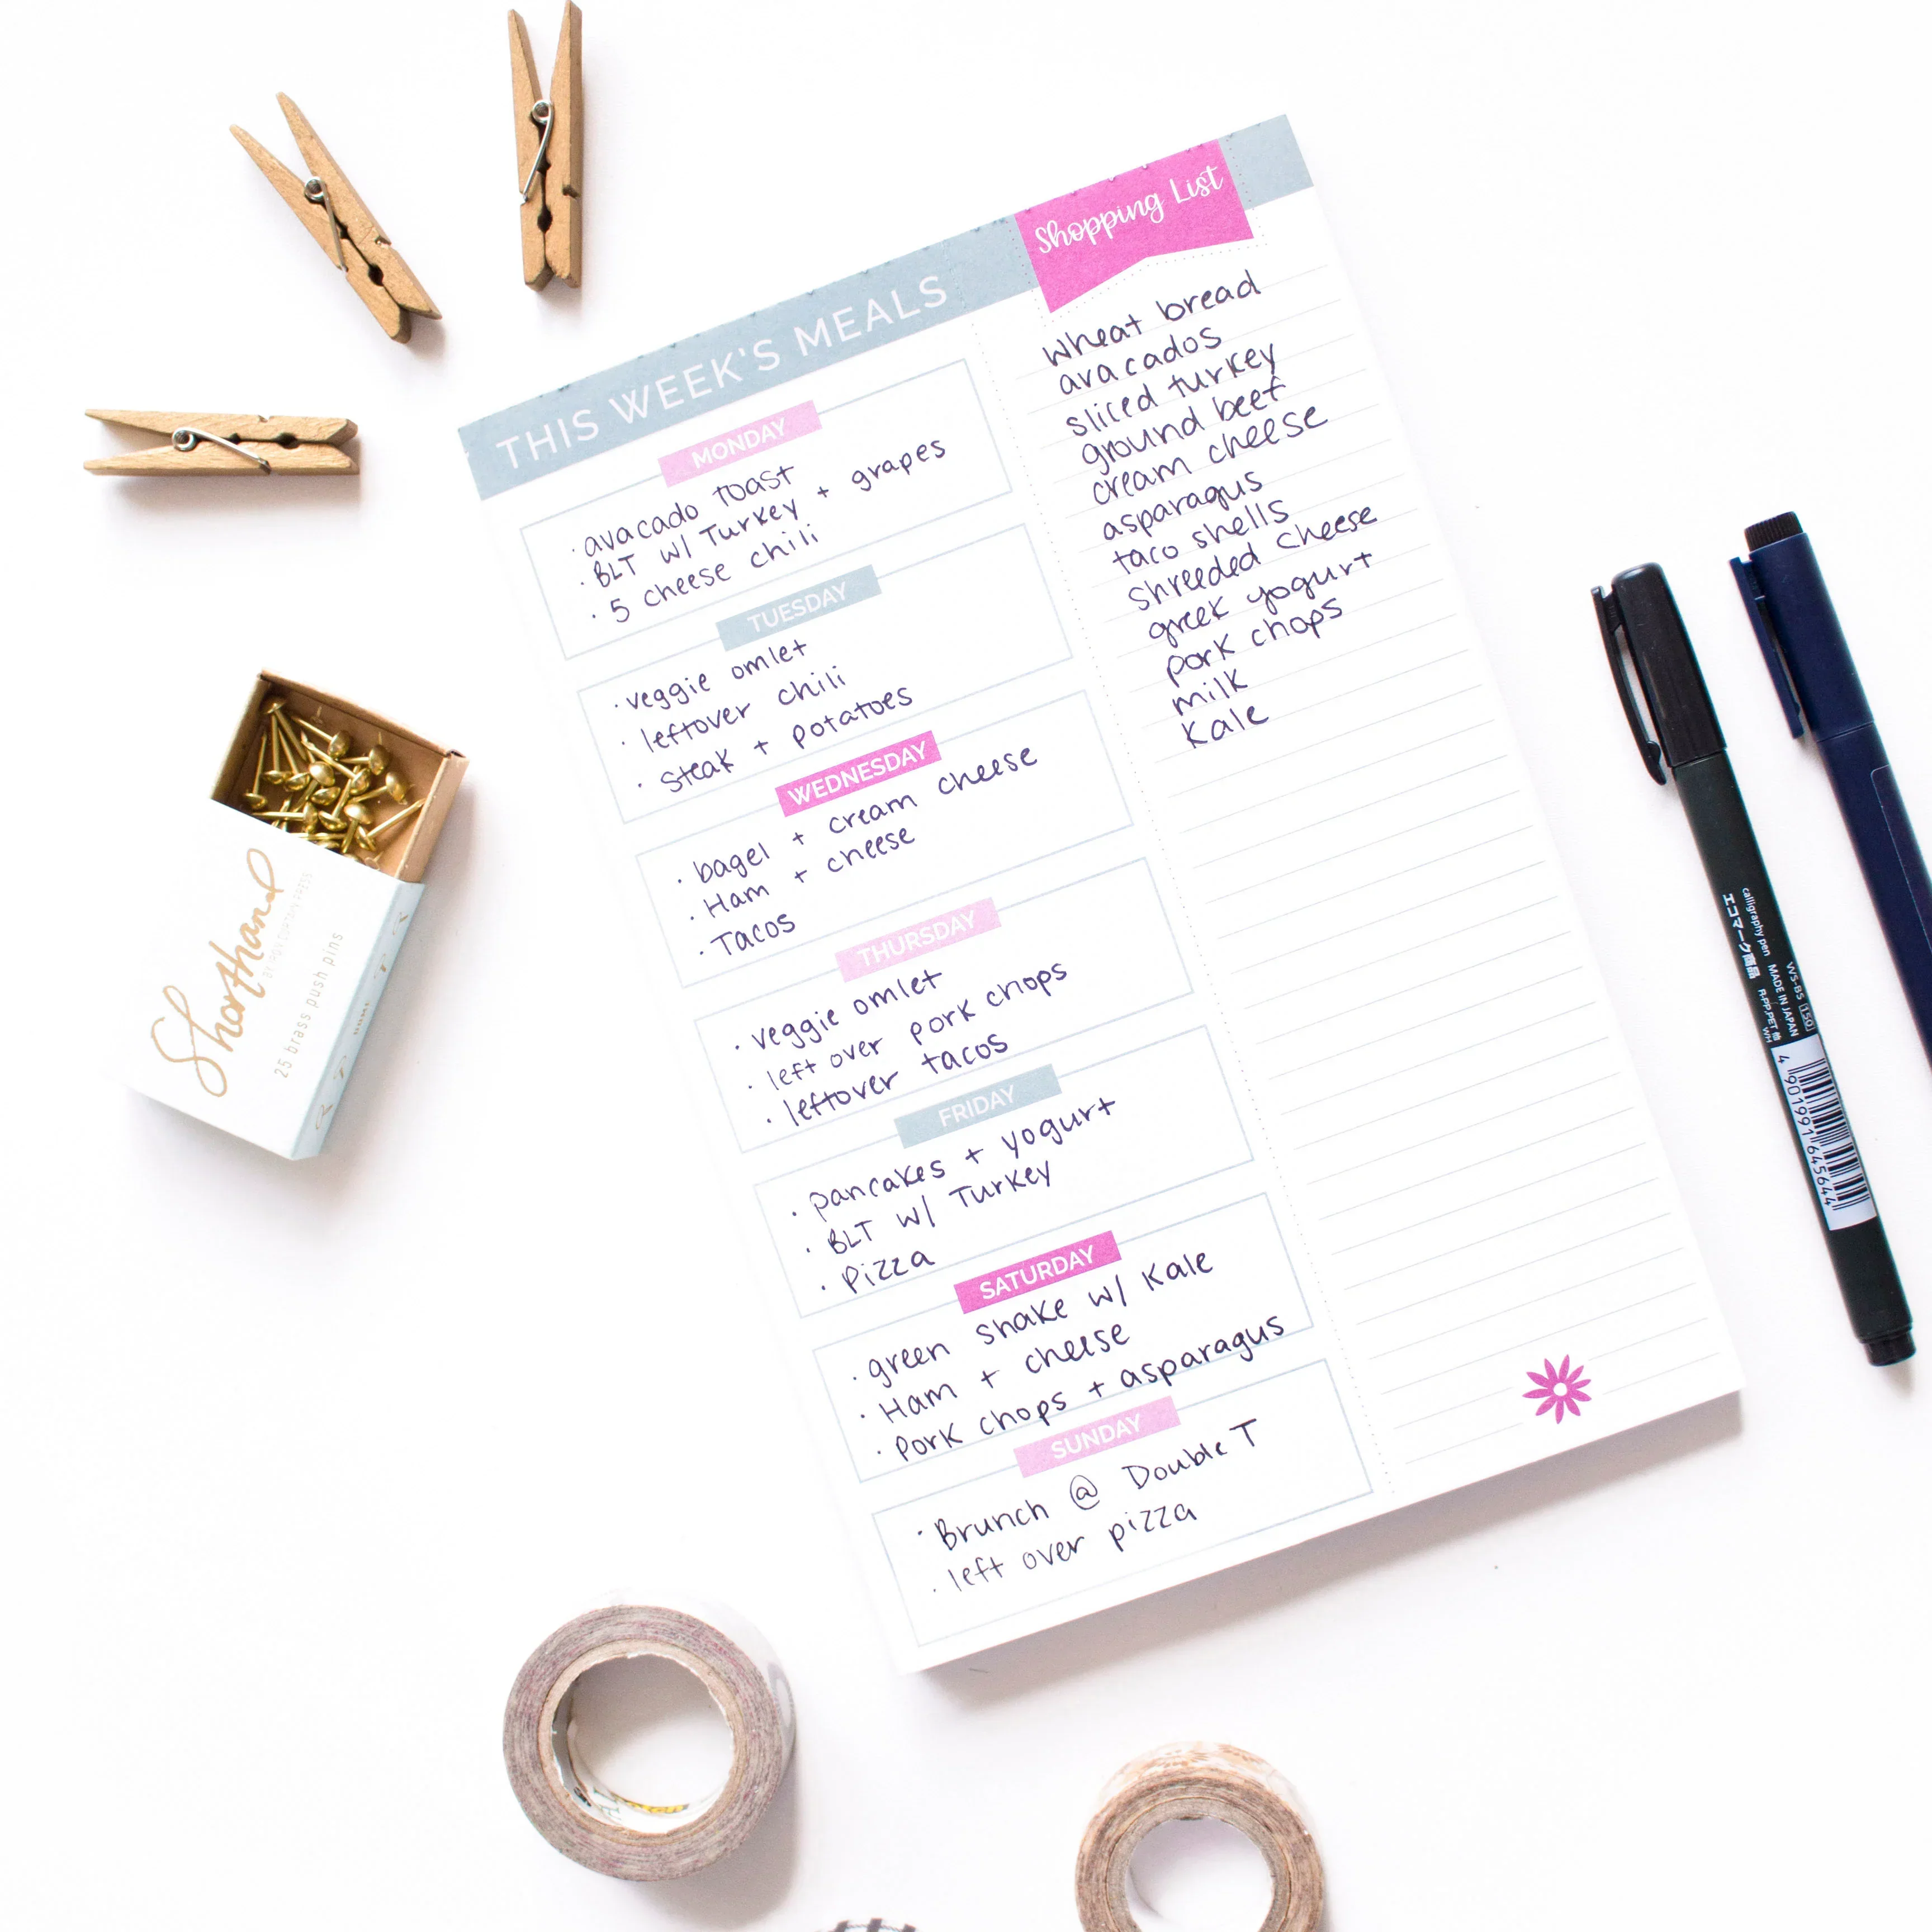 THIS WEEK'S MEALS
MONDAY
· avacado toast
· BLT w/ Turkey + grapes
· 5 cheese chili
TUESDAY
· veggie omlet
· leftover chili
· steak + potatoes
WEDNESDAY
· bagel + cream cheese
· Ham + cheese
· Tacos
THURSDAY
· veggie omlet
· left over pork chops
· leftover tacos
FRIDAY
· pancakes + yogurt
· BLT w/ Turkey
· pizza
SATURDAY
· green shake w/ Kale
· Ham + cheese
· Pork chops + asparagus
SUNDAY
· Brunch @ Double T
· left over pizza
Shopping List
wheat bread
avacados
sliced turkey
ground beef
cream cheese
asparagus
taco shells
shreeded cheese
greek yogurt
pork chops
milk
Kale
Shorthand
25 brass push pins
calligraphy pen MADE IN JAPAN
エコマーク商品
WS-BS 150
4901991645644